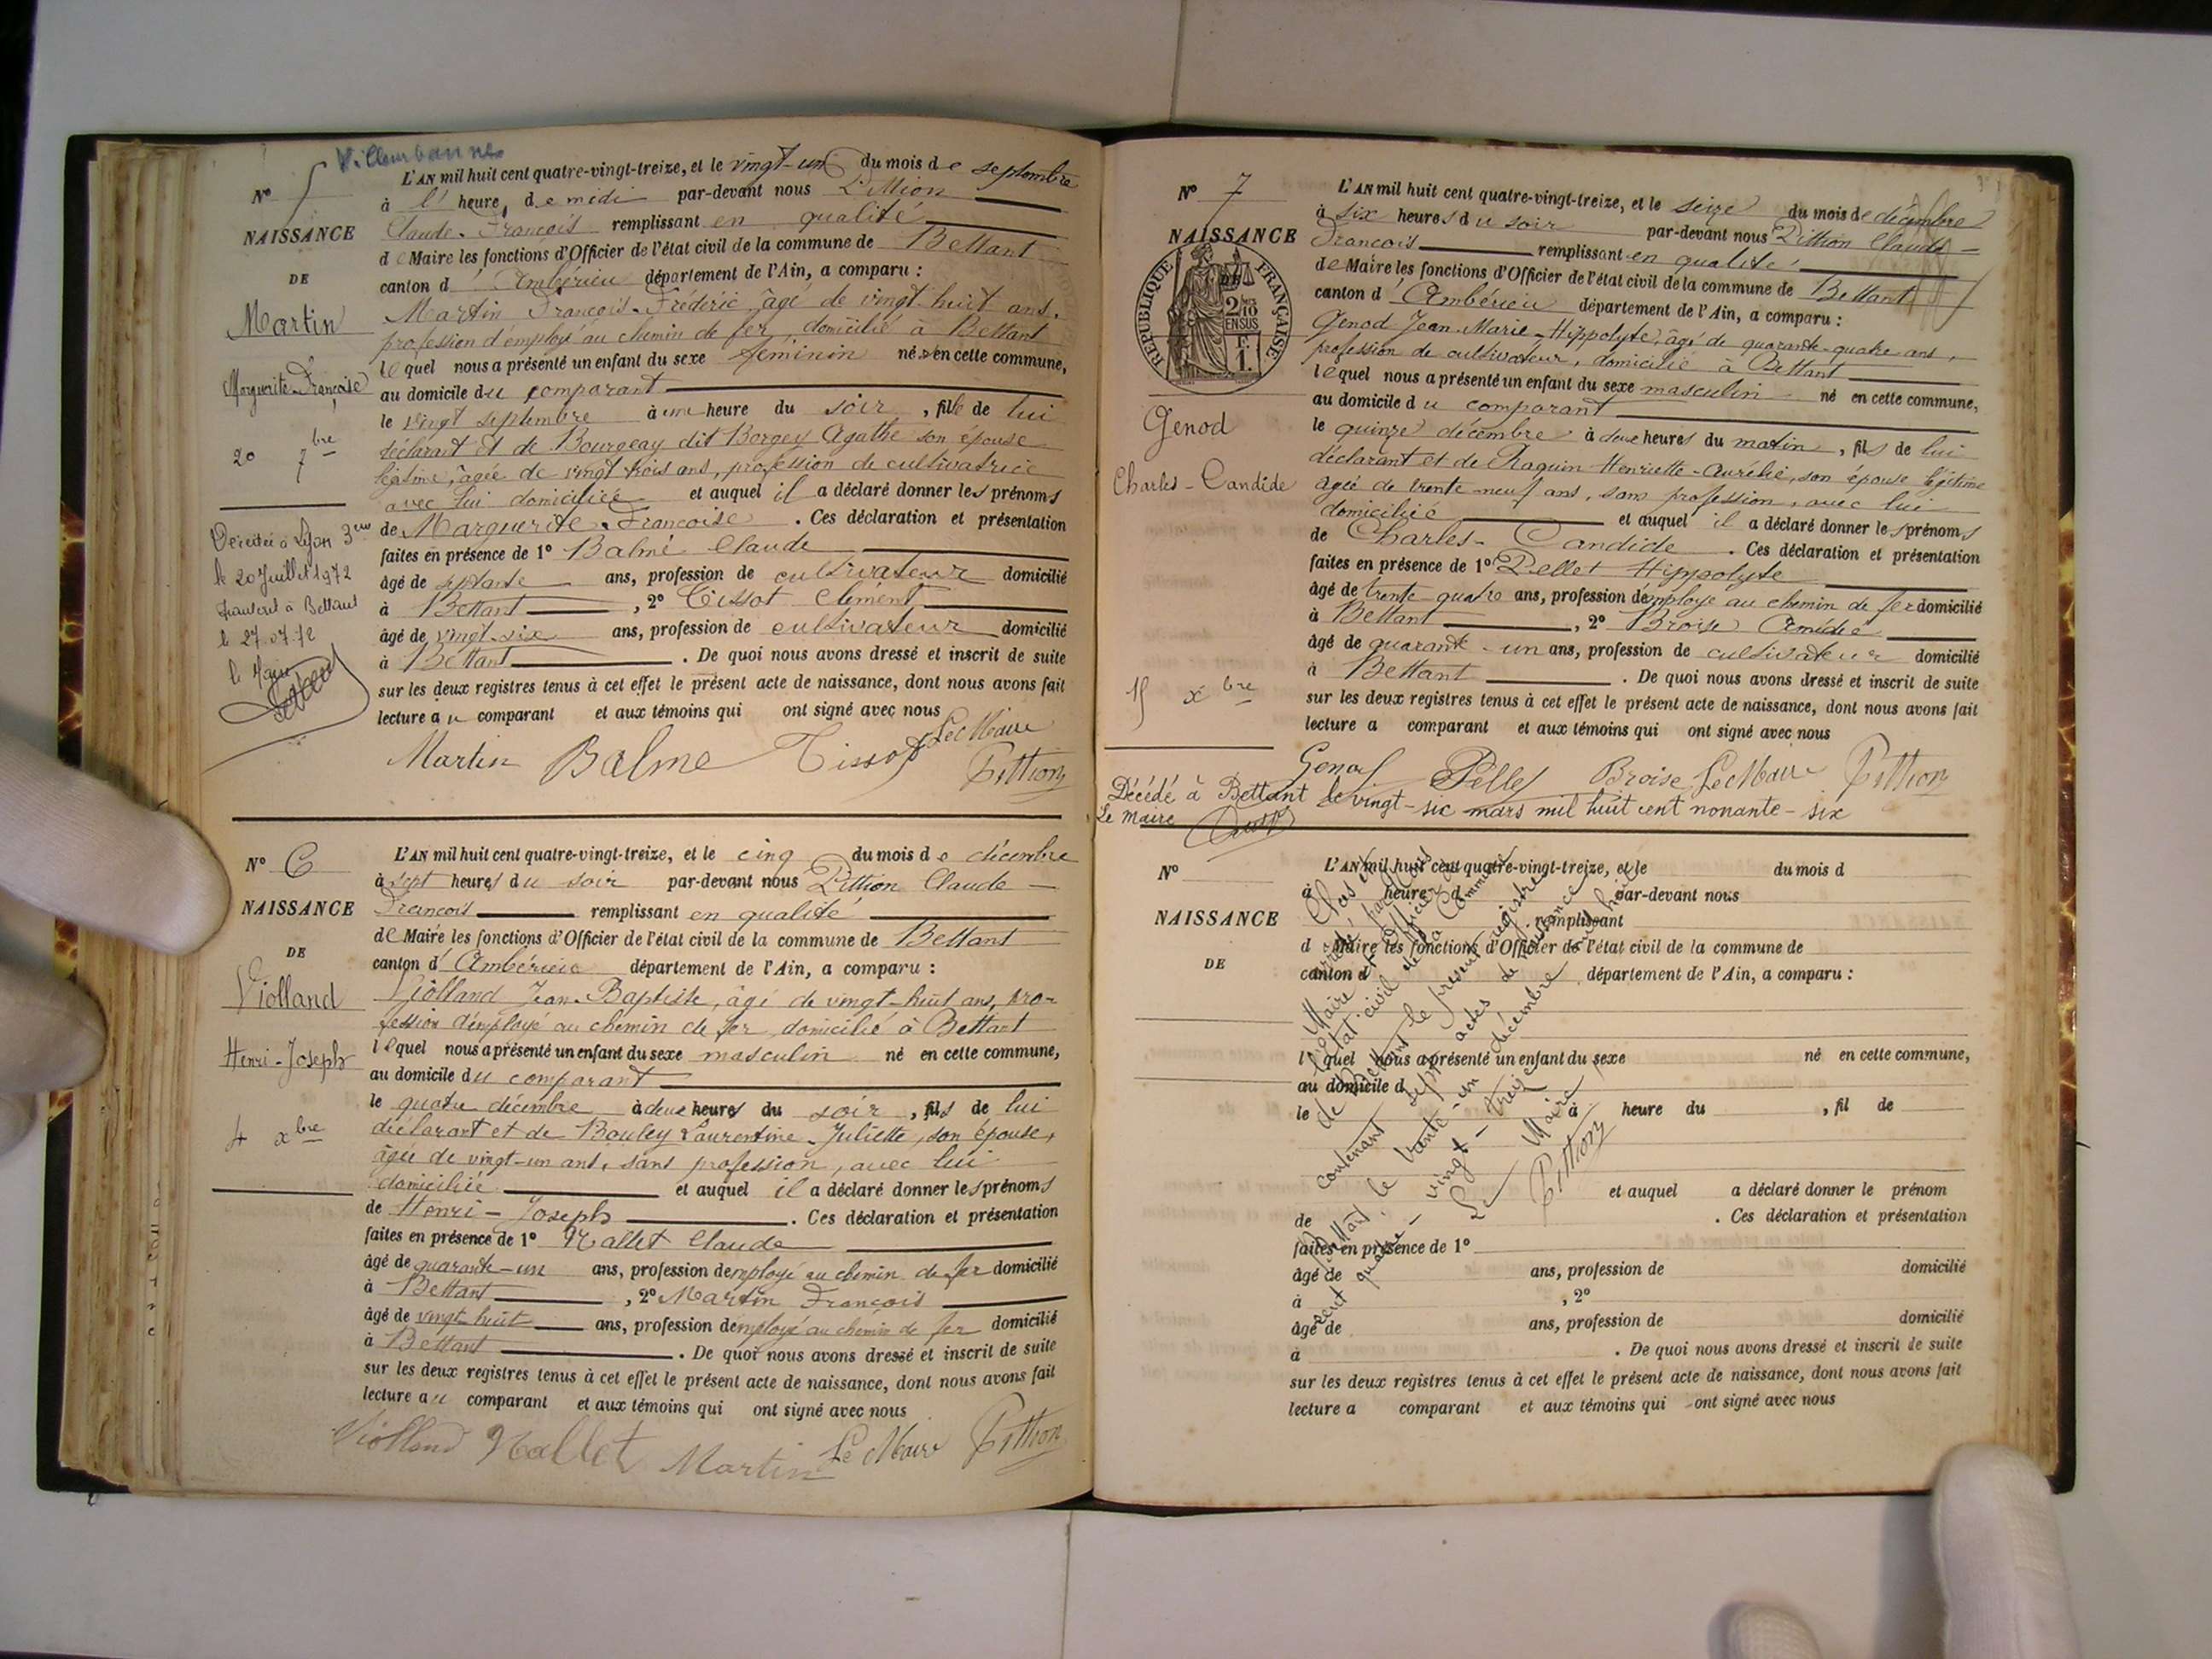 Villeurbanne
N° 5
NAISSANCE
DE
Martin
Marguerite-Françoise
20 7bre
Décédée à Lyon 3eme
le 20 Juillet 1972
transcrit à Bettant
le 27.07.72
le Maire
L'AN mil huit cent quatre-vingt-treize, et le vingt-un du mois de septembre
à l' heure, de midi par-devant nous Pittion
Claude-François remplissant en qualité
de Maire les fonctions d'Officier de l'état civil de la commune de Bettant
canton d'Ambérieu département de l'Ain, a comparu :
Martin François-Frédéric âgé de vingt huit ans,
profession d'employé au chemin de fer, domicilié à Bettant
lequel nous a présenté un enfant du sexe féminin née en cette commune,
au domicile du comparant
le vingt septembre à une heure du soir, fille de lui
déclarant et de Bourgeay dit Borgey Agathe son épouse
légitime, âgée de vingt trois ans, profession de cultivatrice
avec lui domiciliée et auquel il a déclaré donner les prénoms
de Marguerite-Françoise. Ces déclaration et présentation
faites en présence de 1° Balme Claude
âgé de septante ans, profession de cultivateur domicilié
à Bettant, 2° Tissot Clément
âgé de vingt-six ans, profession de cultivateur domicilié
à Bettant. De quoi nous avons dressé et inscrit de suite
sur les deux registres tenus à cet effet le présent acte de naissance, dont nous avons fait
lecture au comparant et aux témoins qui ont signé avec nous
Martin Balme Tissot Le Maire Pittion
N° 6
NAISSANCE
DE
Violland
Henri-Joseph
4 xbre
L'AN mil huit cent quatre-vingt-treize, et le cinq du mois de décembre
à sept heures du soir par-devant nous Pittion Claude
François remplissant en qualité
de Maire les fonctions d'Officier de l'état civil de la commune de Bettant
canton d'Ambérieu département de l'Ain, a comparu :
Violland Jean-Baptiste, âgé de vingt-huit ans, pro-
fession d'employé au chemin de fer, domicilié à Bettant
lequel nous a présenté un enfant du sexe masculin né en cette commune,
au domicile du comparant
le quatre décembre à deux heures du soir, fils de lui
déclarant et de Bouley Laurentine-Juliette, son épouse,
âgée de vingt-un ans, sans profession, avec lui
domiciliée et auquel il a déclaré donner les prénoms
de Henri-Joseph. Ces déclaration et présentation
faites en présence de 1° Nallet Claude
âgé de quarante-un ans, profession d'employé au chemin de fer domicilié
à Bettant, 2° Martin François
âgé de vingt-huit ans, profession d'employé au chemin de fer domicilié
à Bettant. De quoi nous avons dressé et inscrit de suite
sur les deux registres tenus à cet effet le présent acte de naissance, dont nous avons fait
lecture au comparant et aux témoins qui ont signé avec nous
Violland Nallet Martin Le Maire Pittion
N° 7
NAISSANCE
DE
RÉPUBLIQUE FRANÇAISE
2/10
EN SUS
F.
1.
Genod
Charles-Candide
15 xbre
L'AN mil huit cent quatre-vingt-treize, et le seize du mois de décembre
à six heures du soir par-devant nous Pittion Claude-
François remplissant en qualité
de Maire les fonctions d'Officier de l'état civil de la commune de Bettant
canton d'Ambérieu département de l'Ain, a comparu :
Genod Jean-Marie-Hippolyte, âgé de quarante-quatre ans,
profession de cultivateur, domicilié à Bettant
lequel nous a présenté un enfant du sexe masculin né en cette commune,
au domicile du comparant
le quinze décembre à deux heures du matin, fils de lui
déclarant et de Raquin Henriette-Aurélie, son épouse légitime
âgée de trente-neuf ans, sans profession, avec lui
domiciliée et auquel il a déclaré donner les prénoms
de Charles-Candide. Ces déclaration et présentation
faites en présence de 1° Pellet Hippolyte
âgé de trente-quatre ans, profession d'employé au chemin de fer domicilié
à Bettant, 2° Broise Amédée
âgé de quarante-un ans, profession de cultivateur domicilié
à Bettant. De quoi nous avons dressé et inscrit de suite
sur les deux registres tenus à cet effet le présent acte de naissance, dont nous avons fait
lecture a comparant et aux témoins qui ont signé avec nous
Genod Pellet Broise Le Maire Pittion
Décédé à Bettant le vingt-six mars mil huit cent nonante-six
Le Maire
N°
NAISSANCE
DE
L'AN mil huit cent quatre-vingt-treize, et le du mois d
à heure d par-devant nous
remplissant
d Maire les fonctions d'Officier de l'état civil de la commune de
canton d département de l'Ain, a comparu :
l quel nous a présenté un enfant du sexe né en cette commune,
au domicile d
le à heure du , fil de
et auquel a déclaré donner le prénom
de . Ces déclaration et présentation
faites en présence de 1°
âgé de ans, profession de domicilié
à , 2°
âgé de ans, profession de domicilié
à . De quoi nous avons dressé et inscrit de suite
sur les deux registres tenus à cet effet le présent acte de naissance, dont nous avons fait
lecture a comparant et aux témoins qui ont signé avec nous
Clos et arrêté par Nous
Maire et Officier de
l'état civil de la Commune
de Bettant le présent registre
contenant sept actes de naissance
Bettant, le trente-un décembre mil huit
cent quatre-vingt-treize
Le Maire
Pittion